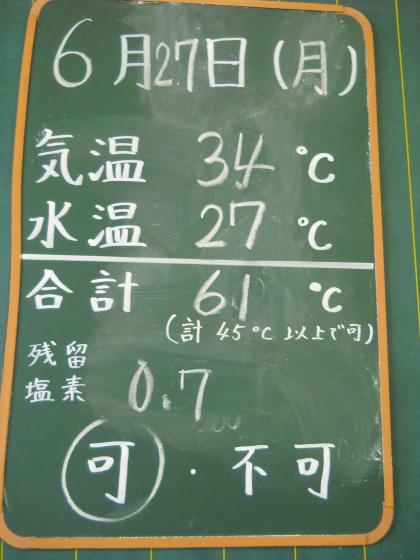 6月27日(月)
気温 34 ℃
水温 27 ℃
合計 61 ℃
(計 45℃ 以上で可)
残留
塩素 0.7
可・不可